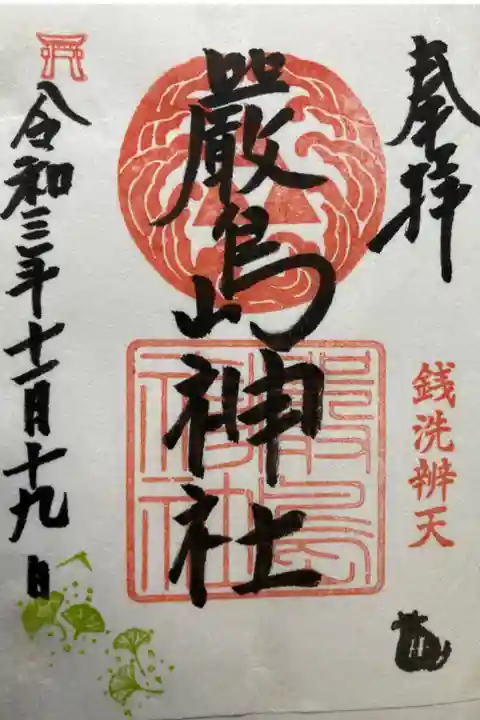 奉拝
銭洗辨天
嚴島神社
嚴島
神社
令和三年十一月十九日